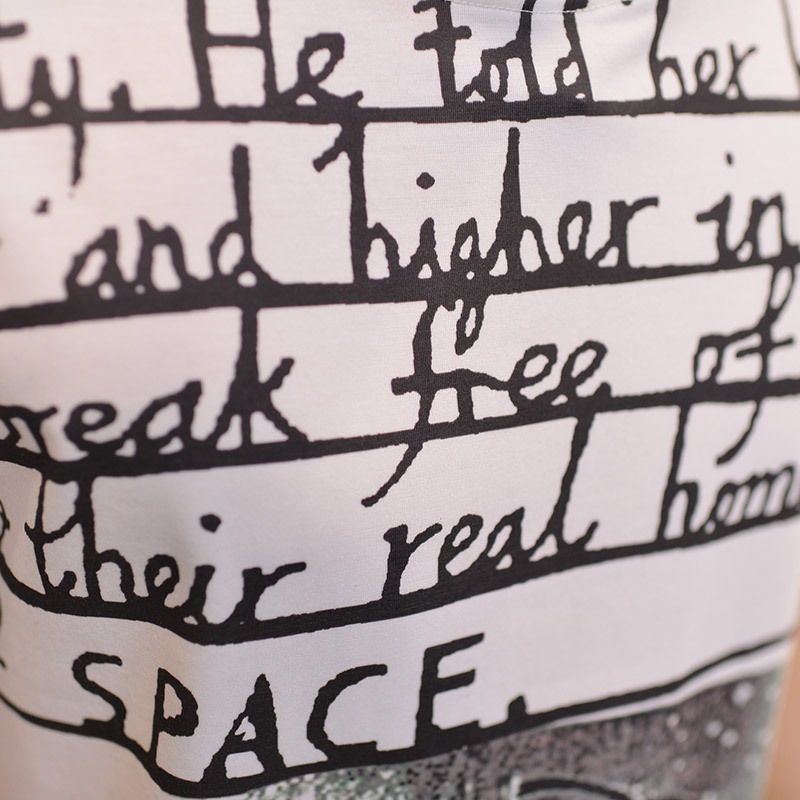 ty. He told her
and higher in
reak free of
their real hom
SPACE.